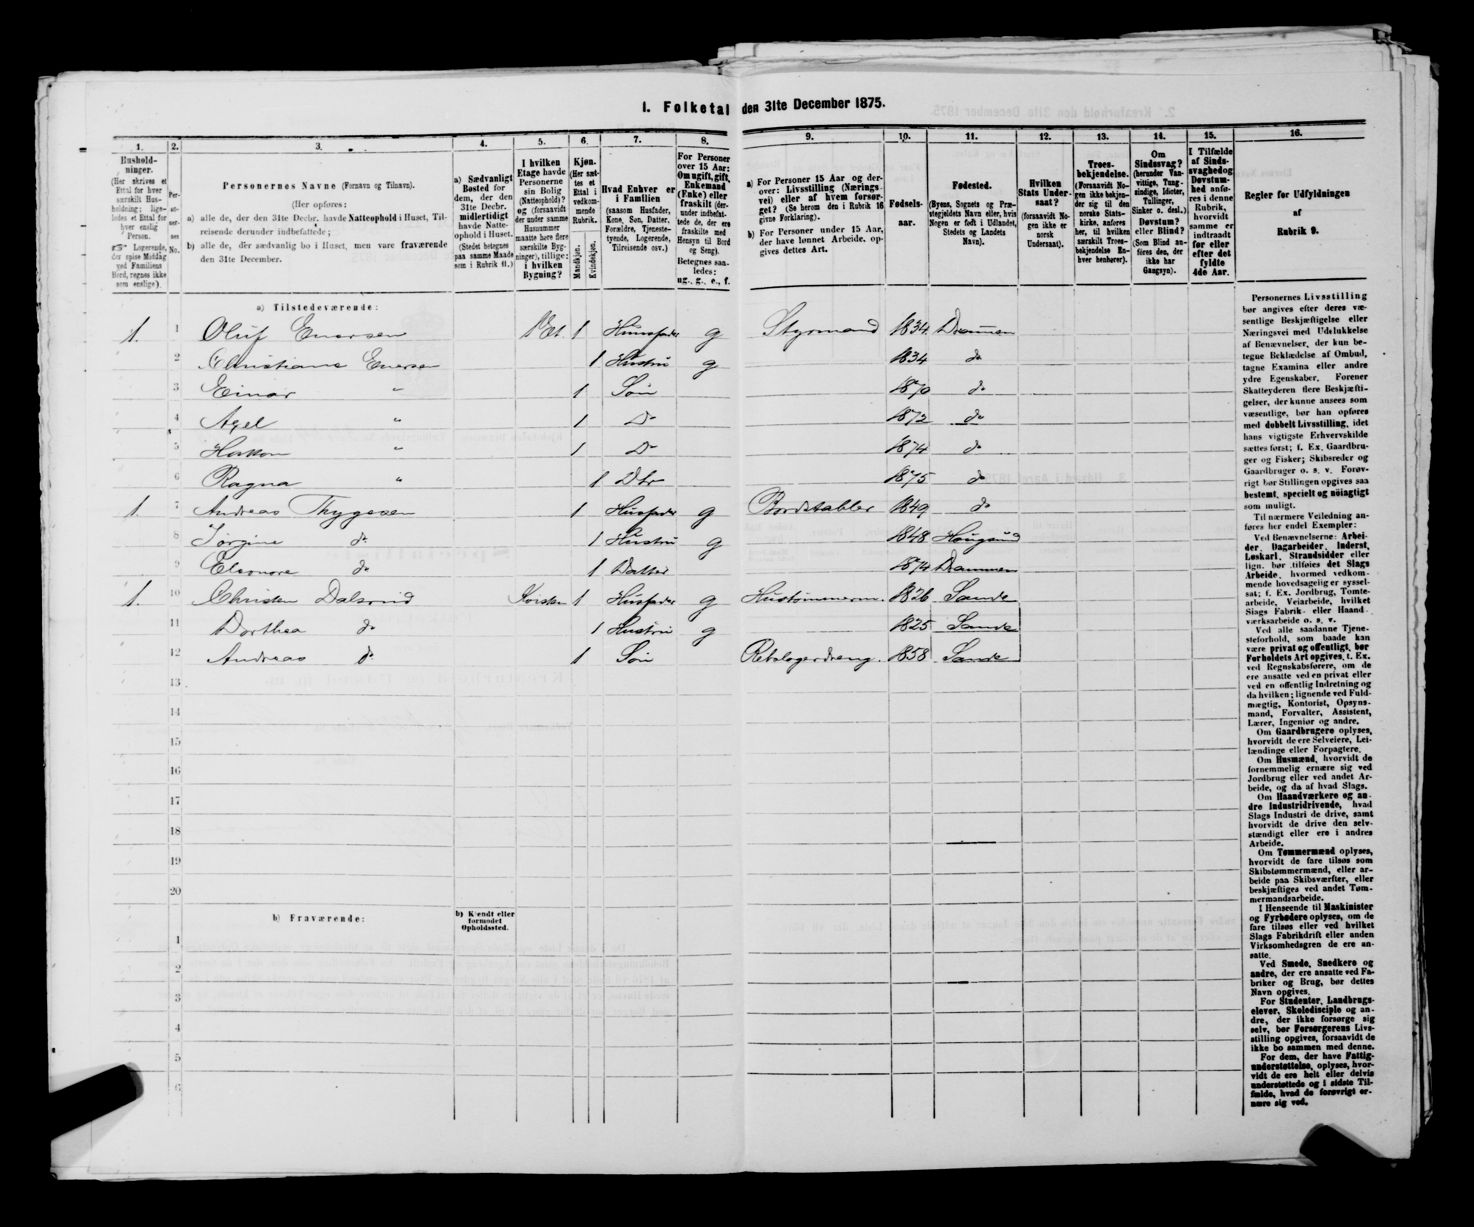 1. Folketal den 31te December 1875.
1. 2. 3. 4. 5. 6. 7. 8. 9. 10. 11. 12. 13. 14. 15. 16.
Husholdninger.
(Her skrives et Ettal for hver særskilt Husholdning; ligeledes et Ettal for hver enslig Person.
☞ Logerende, der spise Middag ved Familiens Bord, regnes ikke som enslige).
Personernes No.
Personernes Navne (Fornavn og Tilnavn).
(Her opføres:
a) alle de, der den 31te Decbr. havde Natteophold i Huset, Tilreisende derunder indbefattede;
b) alle de, der sædvanlig bo i Huset, men vare fraværende den 31te December.
a) Sædvanligt Bosted for dem, der den 31te Decbr. midlertidigt havde Natteophold i Huset. (Stedet betegnes paa samme Maade som i Rubrik 11.)
I hvilken Etage havde Personerne sin Bolig (Natteophold)? og (forsaavidt der under samme Husnummer maatte høre flere særskilte Bygninger), tillige: i hvilken Bygning?
Kjøn.
(Her sættes et Ettal i vedkommende Rubrik.)
Mandkjøn. Kvindekjøn.
Hvad Enhver er i Familien
(saasom Husfader, Kone, Søn, Datter, Forældre, Tjenestetyende, Logerende, Tilreisende osv.)
For Personer over 15 Aar: Om ugift, gift, Enkemand (Enke) eller fraskilt (derunder indbefattede de, der ere fraskilte med Hensyn til Bord og Seng).
Betegnes saaledes: ug., g., e., f.
a) For Personer 15 Aar og derover: Livsstilling (Næringsvei) eller af hvem forsørget? (Se herom den i Rubrik 16 givne Forklaring).
b) For Personer under 15 Aar, der have lønnet Arbeide, opgives dettes Art.
Fødselsaar.
Fødested.
(Byens, Sognets og Præstegjeldets Navn eller, hvis Nogen er født i Udlandet, Stedets og Landets Navn).
Hvilken Stats Undersaat?
(forsaavidt Nogen ikke er norsk Undersaat).
Troesbekjendelse.
(Forsaavidt Nogen ikke bekjender sig til den norske Statskirke, anføres her, til hvilken særskilt Troesbekjendelse Enhver henhører).
Om Sindssvag? (herunder Vanvittige, Tungsindige, Idioter, Tullinger, Sinker o. desl.) Døvstum? eller Blind? (Som Blind anføres den, der ikke har Gangsyn).
I Tilfælde af Sindssvaghed og Døvstumhed anføres i denne Rubrik, hvorvidt samme er indtraadt før eller efter det fyldte 4de Aar.
Regler for Udfyldningen af Rubrik 9.
a) Tilstedeværende:
1. 1 Oluf Enersen 1 Et. 1 Husfader g Styrmand 1834 Drammen
2 Christiane Enersen 1 Hustru g 1834 do
3 Einar " 1 Søn 1870 do
4 Axel " 1 Do 1872 do
5 Haakon " 1 Do 1874 do
6 Ragna " 1 Dtr 1875 do
1. 7 Andreas Thygesen 1 Husfader g Bordstabler 1849 do
8 Jørgine do 1 Hustru g 1848 Hougsund
9 Eleonore do 1 Datter 1874 Drammen
1. 10 Christen Dalsrud 1 Husfader g Hustømmerm. 1826 Sande
11 Dorthea do 1 Hustru g 1825 Sande
12 Andreas do 1 Søn 1858 Sande
13
14
15
16
17
18
19
20
b) Fraværende:
b) Kjendt eller formodet Opholdssted.
1
2
3
4
5
6
Personernes Livsstilling
bør angives efter deres væ-
sentlige Beskjæftigelse eller
Næringsvei med Udelukkelse
af Benævnelser, der kun be-
tegne Beklædelse af Ombud,
tagne Examina eller andre
ydre Egenskaber. Forener
Skatteyderen flere Beskjæfti-
gelser, der kunne ansees som
væsentlige, bør han opføres
med dobbelt Livsstilling, idet
hans vigtigste Erhvervskilde
sættes først; f. Ex. Gaardbru-
ger og Fisker; Skibsreder og
Gaardbruger o. s. v. Forøv-
rigt bør Stillingen opgives saa
bestemt, specielt og nöiagtigt
som muligt.
Til nærmere Veiledning an-
føres her endel Exempler:
Ved Benævnelserne: Arbei-
der, Dagarbeider, Inderst,
Løskarl, Strandsidder eller
lign. bør tilføies det Slags
Arbeide, hvormed vedkom-
mende hovedsagelig er syssel-
sat; f. Ex. Jordbrug, Tomte-
arbeide, Veiarbeide, hvilket
Slags Fabrik- eller Haand-
værksarbeide o. s. v.
Ved alle saadanne Tjene-
steforhold, som baade kan
være privat og offentligt, bør
Forholdets Art opgives, t. Ex.
ved Regnskabsførere, om de
ere ansatte ved en privat eller
ved en offentlig Indretning og
da hvilken; lignende ved Fuld-
mægtig, Kontorist, Opsyns-
mand, Forvalter, Assistent,
Lærer, Ingeniør og andre.
Om Gaardbrugere oplyses,
hvorvidt de ere Selveiere, Lei-
lændinge eller Forpagtere.
Om Husmænd, hvorvidt de
fornemmelig ernære sig ved
Jordbrug eller ved andet Ar-
beide, og da af hvad Slags.
Om Haandværkere og an-
dre Industridrivende, hvad
Slags Industri de drive, samt
hvorvidt de drive den selv-
stændigt eller ere i andres
Arbeide.
Om Tømmermænd oplyses,
hvorvidt de fare tilsøs som
Skibstømmermænd, eller ar-
beide paa Skibsværfter, eller
beskjæftiges ved andet Tøm-
mermandsarbeide.
I Henseende til Maskinister
og Fyrbødere oplyses, om de
fare tilsøs eller ved hvilket
Slags Fabrikdrift eller anden
Virksomhedsgren de ere an-
satte.
Ved Smede, Snedkere og
andre, der ere ansatte ved Fa-
briker og Brug, bør dettes
Navn opgives.
For Studenter, Landbrugs-
elever, Skoledisciple og an-
dre, der ikke forsørge sig
selv, bør Forsørgerens Livs-
stilling opgives, forsaavidt de
ikke bo sammen med denne.
For dem, der have Fattig-
understøttelse, oplyses, hvor-
vidt de ere helt eller delvis
understøttede og i sidste Til-
fælde, hvad de forøvrigt er-
nære sig ved.